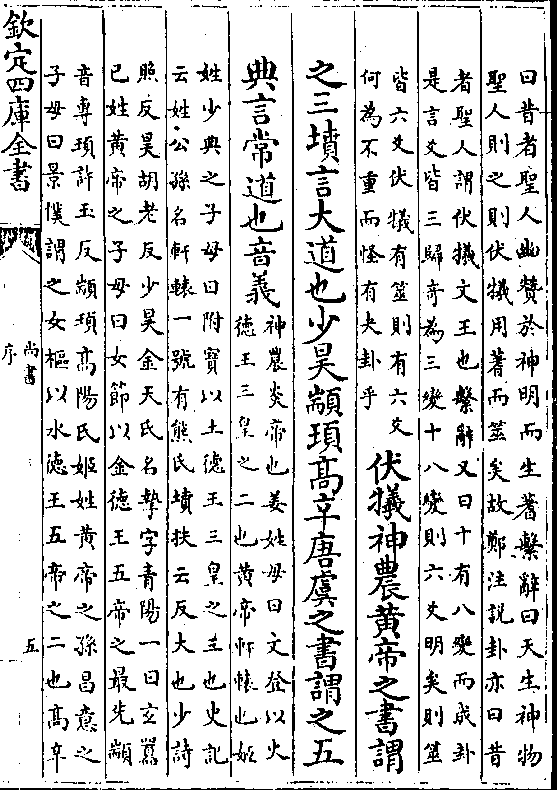 曰昔者聖人幽贊於神明而生蓍繫辭曰天生神物
聖人則之則伏犧用蓍而筮矣故鄭注說卦亦曰昔
者聖人謂伏犧文王也繫辭又曰十有八變而成卦
是言爻皆三歸奇為三變十八變則六爻明矣則筮
皆六爻伏犧有筮則有六爻
何為不重而怪有夬卦乎
伏犧神農黃帝之書謂
之三墳言大道也少昊顓頊高辛唐虞之書謂之五
典言常道也音義
神農炎帝也姜姓母曰文登以火
德王三皇之二也黃帝軒轅也姬
姓少典之子母曰附寶以土德王三皇之主也史記
云姓公孫名軒轅一號有熊氏墳扶云反大也少詩
照反昊胡老反少昊金天氏名摯字青陽一曰玄囂
已姓黃帝之子母曰女節以金德王五帝之最先顓
音專頊許玉反顓頊高陽氏姬姓黃帝之孫昌意之
子母曰景僕謂之女樞以水德王五帝之二也高辛
欽定四庫全書
尚書
序
五